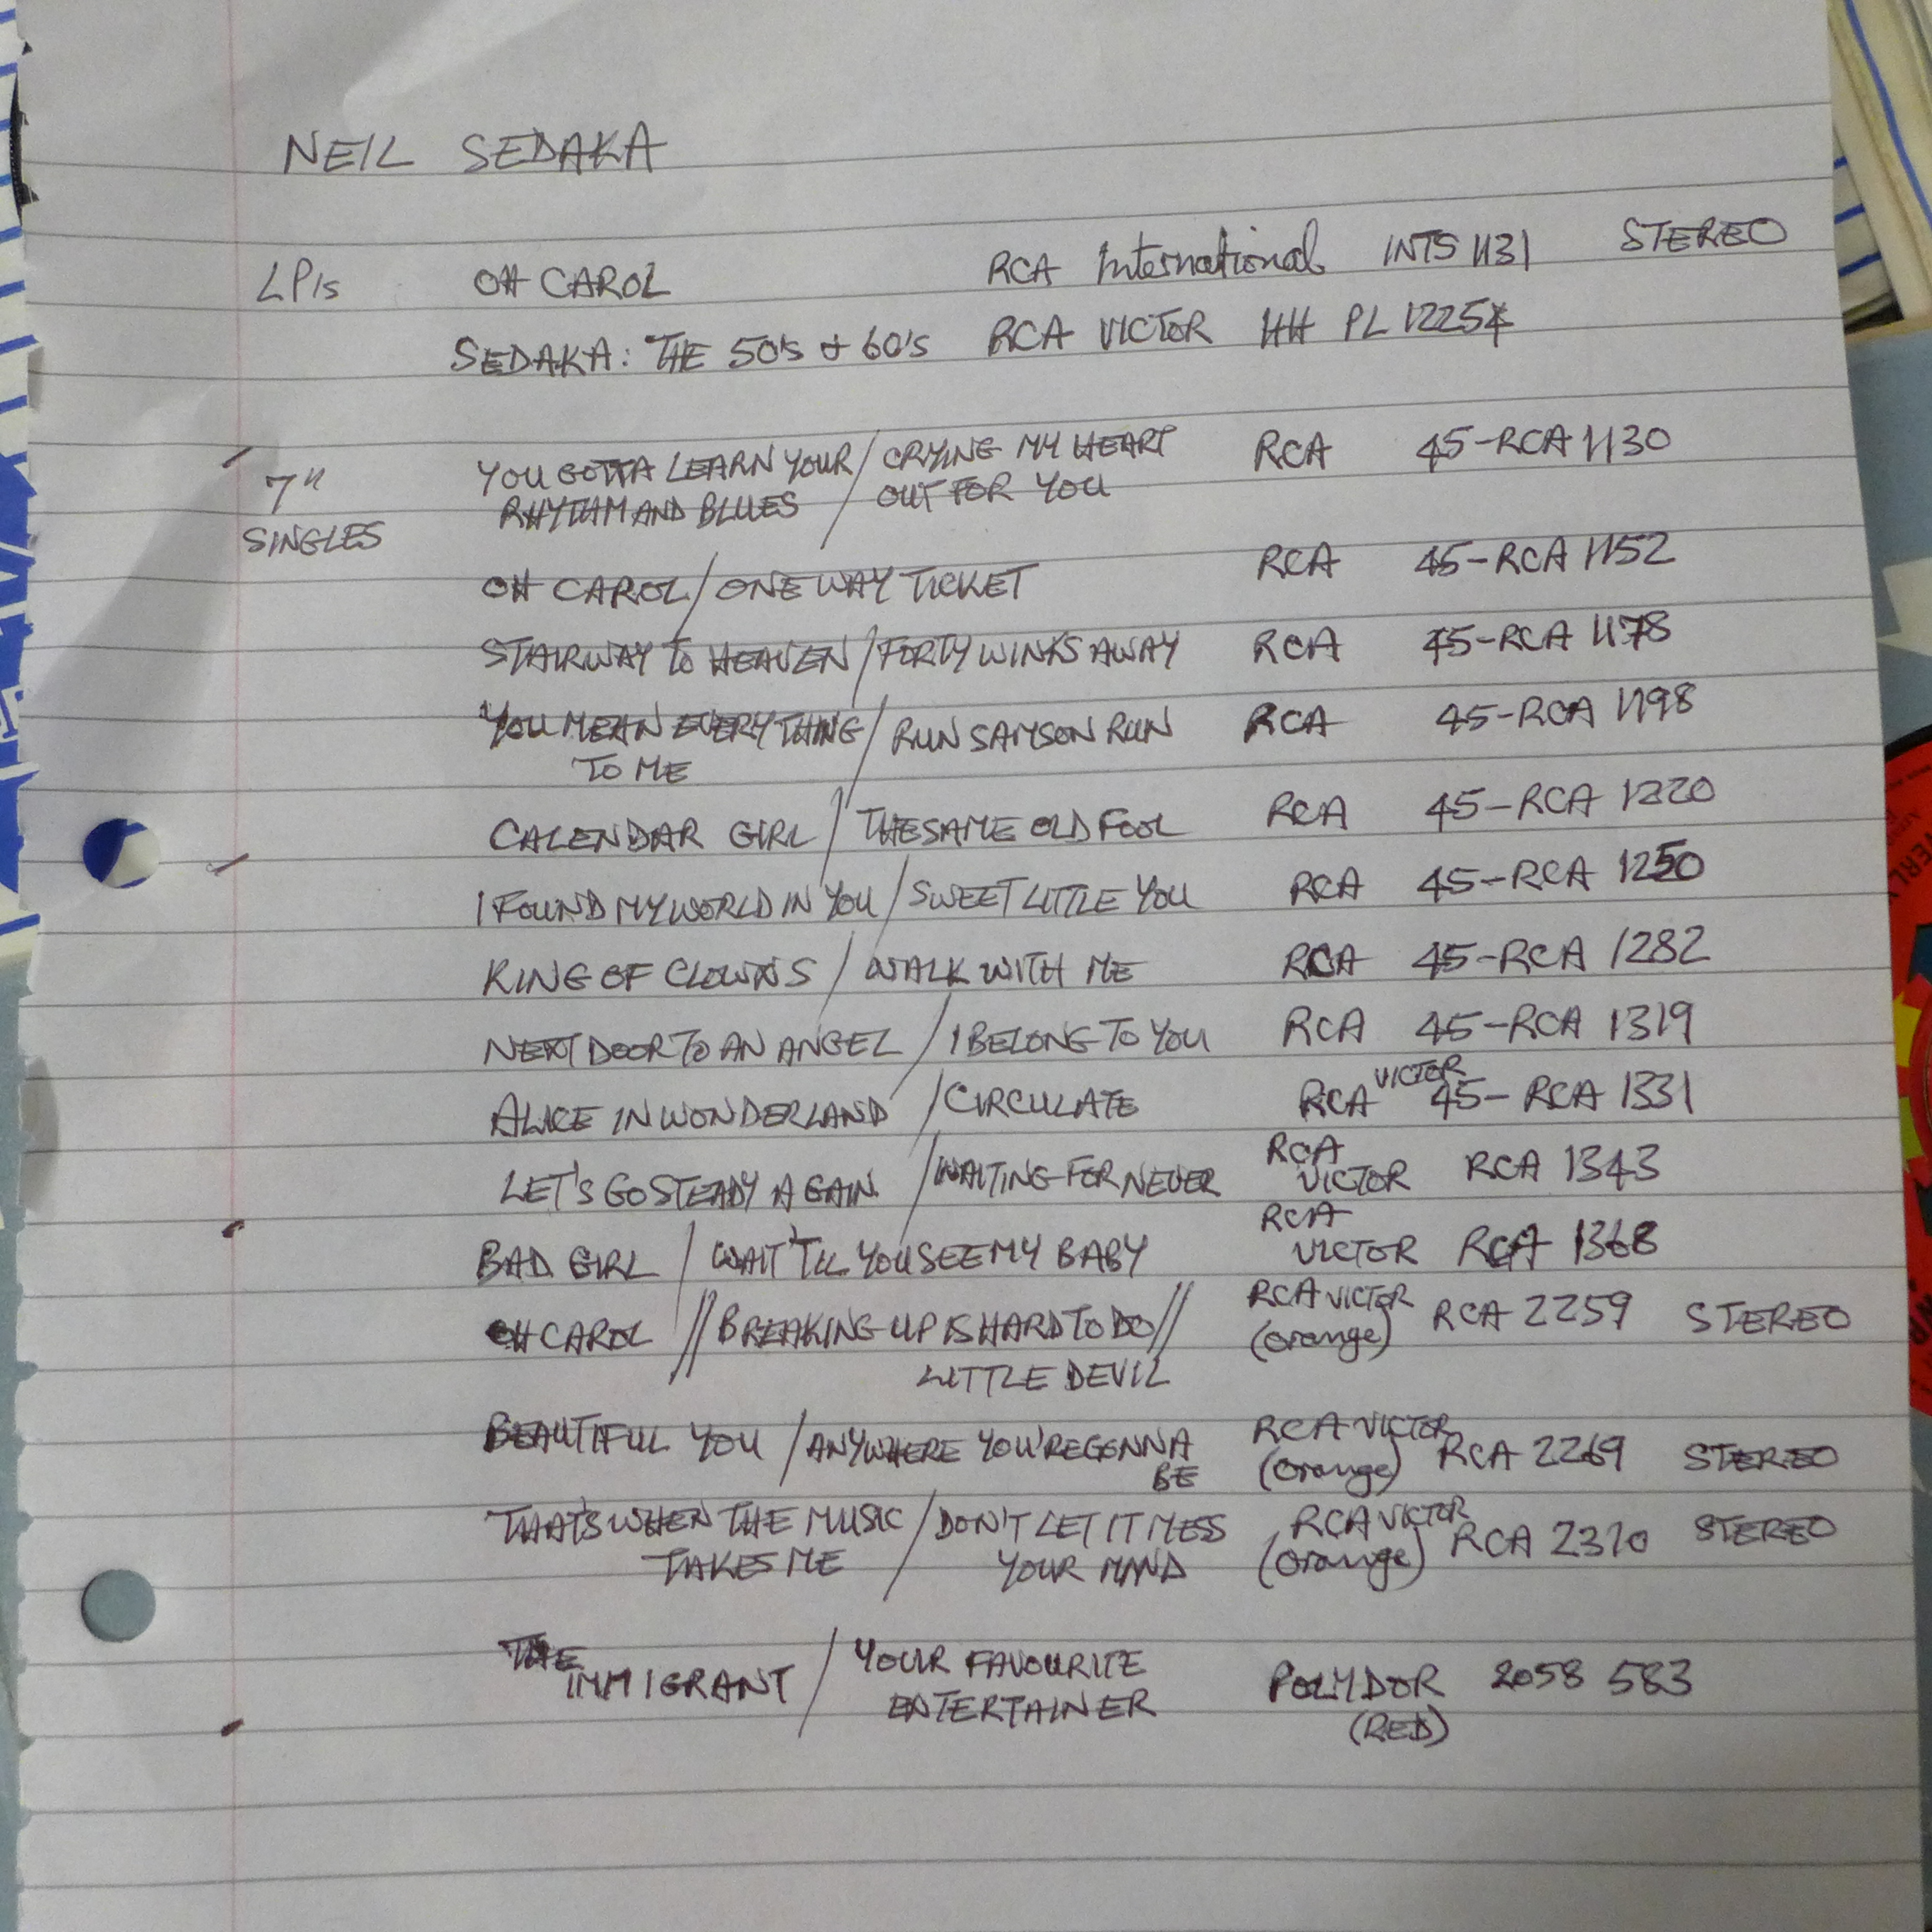 NEIL SEDAKA
LP's OH CAROL RCA International INTS 1131 STEREO
SEDAKA: THE 50's + 60's RCA VICTOR HH PL 12254
7" YOU GOTTA LEARN YOUR / CRYING MY HEART RCA 45-RCA 1130
SINGLES RHYTHM AND BLUES OUT FOR YOU
OH CAROL / ONE WAY TICKET RCA 45-RCA 1152
STAIRWAY TO HEAVEN / FORTY WINKS AWAY RCA 45-RCA 1178
YOU MEAN EVERYTHING / RUN SAMSON RUN RCA 45-RCA 1198
TO ME
CALENDAR GIRL / THE SAME OLD FOOL RCA 45-RCA 1220
I FOUND MY WORLD IN YOU / SWEET LITTLE YOU RCA 45-RCA 1250
KING OF CLOWNS / WALK WITH ME RCA 45-RCA 1282
NEXT DOOR TO AN ANGEL / I BELONG TO YOU RCA 45-RCA 1319
ALICE IN WONDERLAND / CIRCULATE RCA VICTOR 45-RCA 1331
LET'S GO STEADY AGAIN / WAITING FOR NEVER RCA VICTOR RCA 1343
BAD GIRL / WAIT 'TIL YOU SEE MY BABY RCA VICTOR RCA 1368
OH CAROL // BREAKING UP IS HARD TO DO // RCA VICTOR (orange) RCA 2259 STEREO
LITTLE DEVIL
BEAUTIFUL YOU / ANYWHERE YOU'RE GONNA RCA VICTOR (orange) RCA 2269 STEREO
BE
THAT'S WHEN THE MUSIC / DON'T LET IT MESS RCA VICTOR (orange) RCA 2310 STEREO
TAKES ME YOUR MIND
THE IMMIGRANT / YOUR FAVOURITE POLYDOR 2058 583
ENTERTAINER (RED)